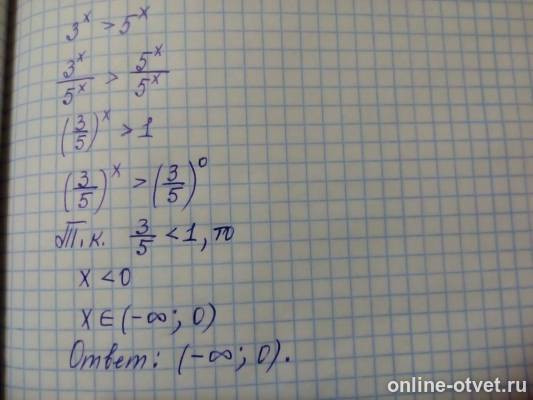 3^x > 5^x
3^x/5^x > 5^x/5^x
(3/5)^x > 1
(3/5)^x > (3/5)^0
Т.к. 3/5 < 1, то
x < 0
x ∈ (-∞; 0)
Ответ: (-∞; 0).
online-otvet.ru